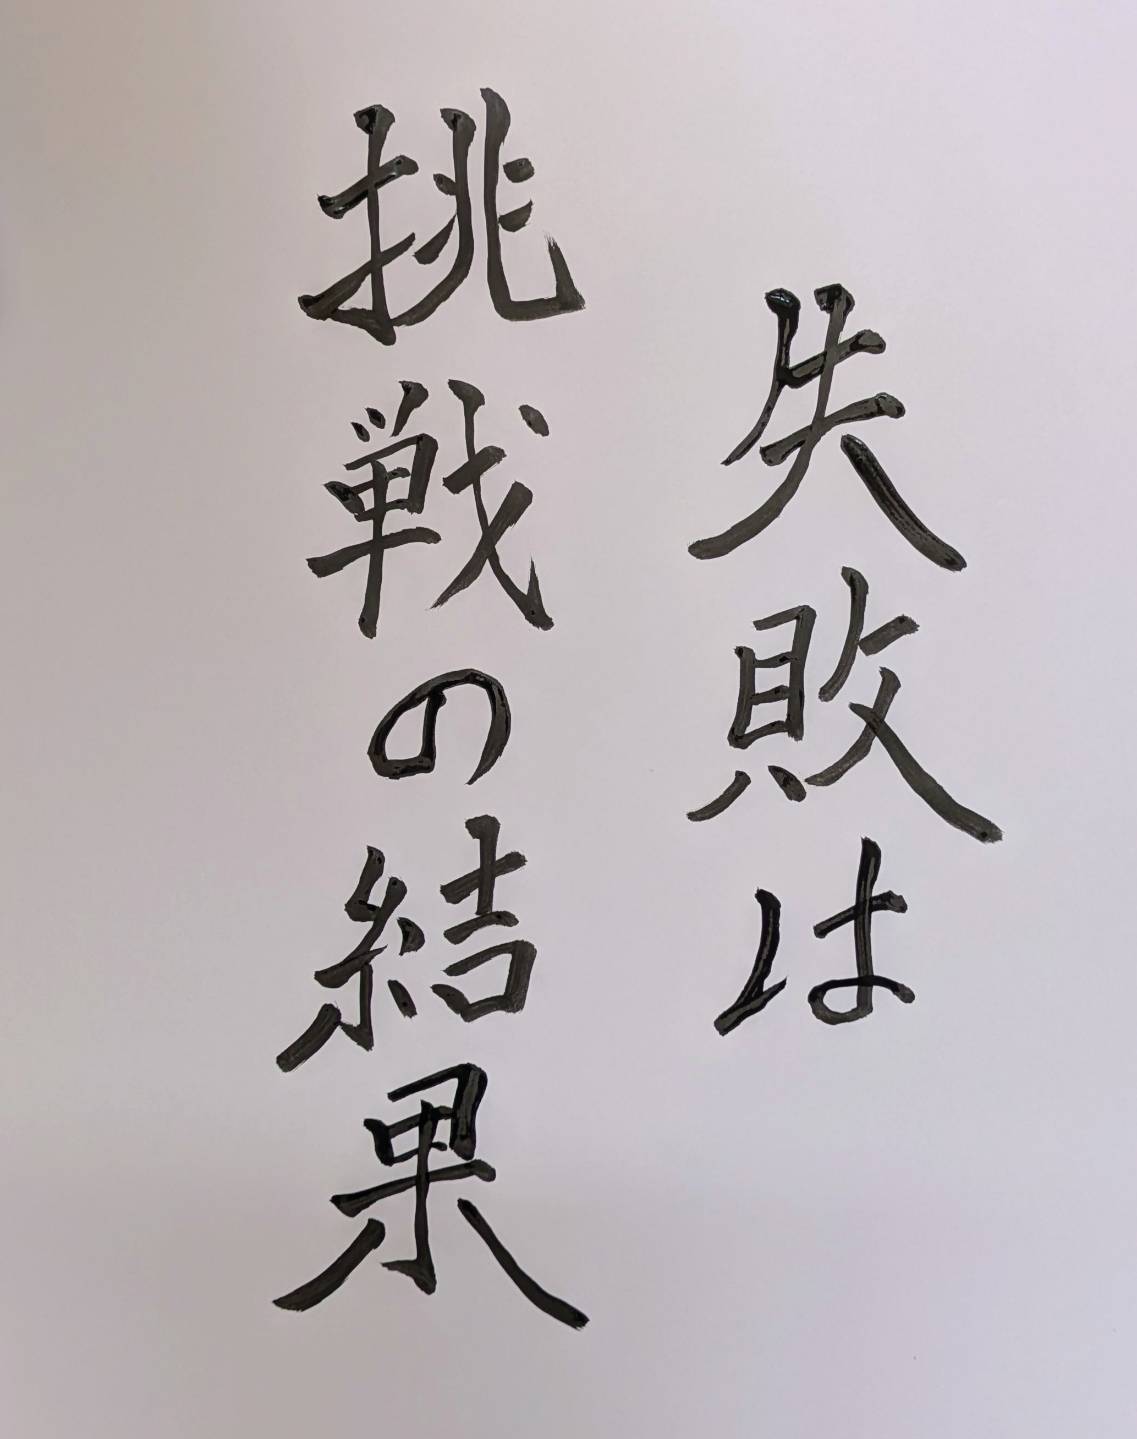 失敗は
挑戦の結果